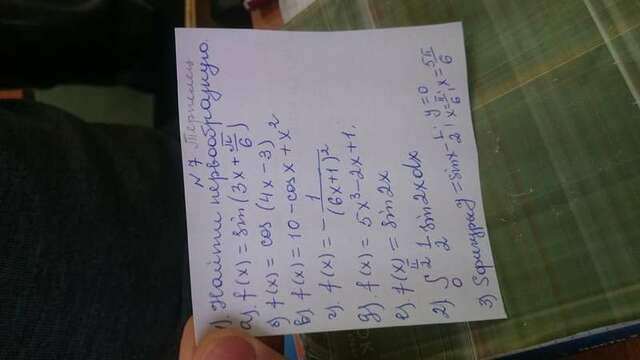 N 7 Терпелец
1). Найти первообразную.
а). f(x) = sin(3x + π/6)
б) f(x) = cos (4x - 3)
в) f(x) = 10 - cosx + x²
г). f(x) = - 1/(6x+1)²
д). f(x) = 5x³ - 2x + 1.
е). f(x) = sin2x
2) ∫₀^(π/2) 1/2 sin2xdx
3) Sфигуры y = sinx - 1/2; y = 0 x = π/6; x = 5π/6